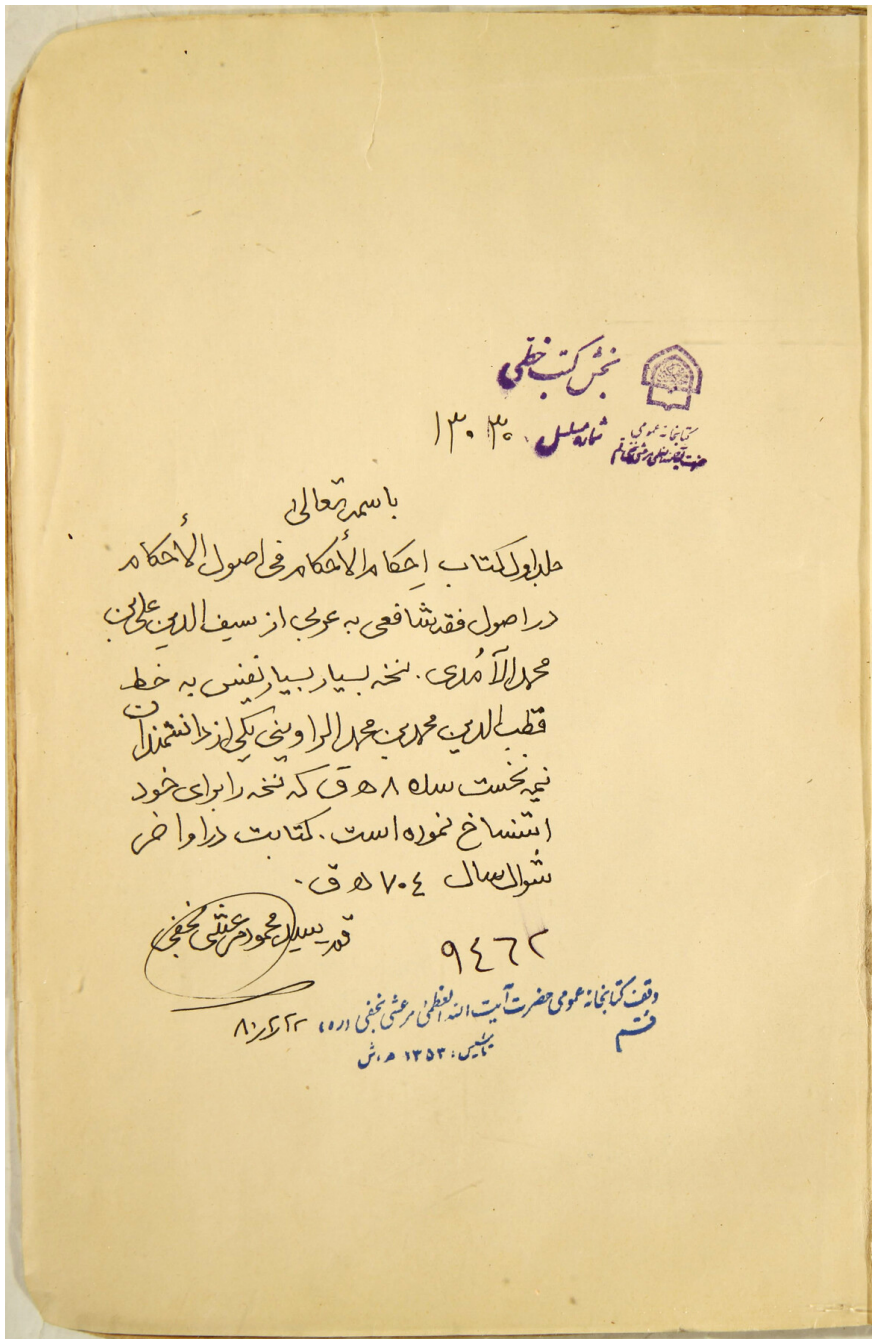 بخش کتب خطّی
کتابخانه عمومی
شماره مسلسل ۱۳۰۳۰
باسمه تعالی
جلد اول کتاب إحکام الأحکام فی اصول الأحکام
در اصول فقه شافعی به عربی از سیف الدین علی بن
محمد الآمُدی. نسخه بسیار بسیار نفیس به خط
قطب الدین محمد بن محمد الراوینی یکی از دانشمندان
نیمه نخست سده ۸ ه ق که نسخه را برای خود
استنساخ نموده است. کتابت در اواخر
شوال سال ٧٠٤ ه ق.
قم سید محمود مرعشی نجفی
٩٤٦٢
وقف کتابخانه عمومی حضرت آیت الله العظمی مرعشی نجفی (ره)
قم
۸۰/۲/۲۲
تأسیس: ۱۳۵۳ ه.ش